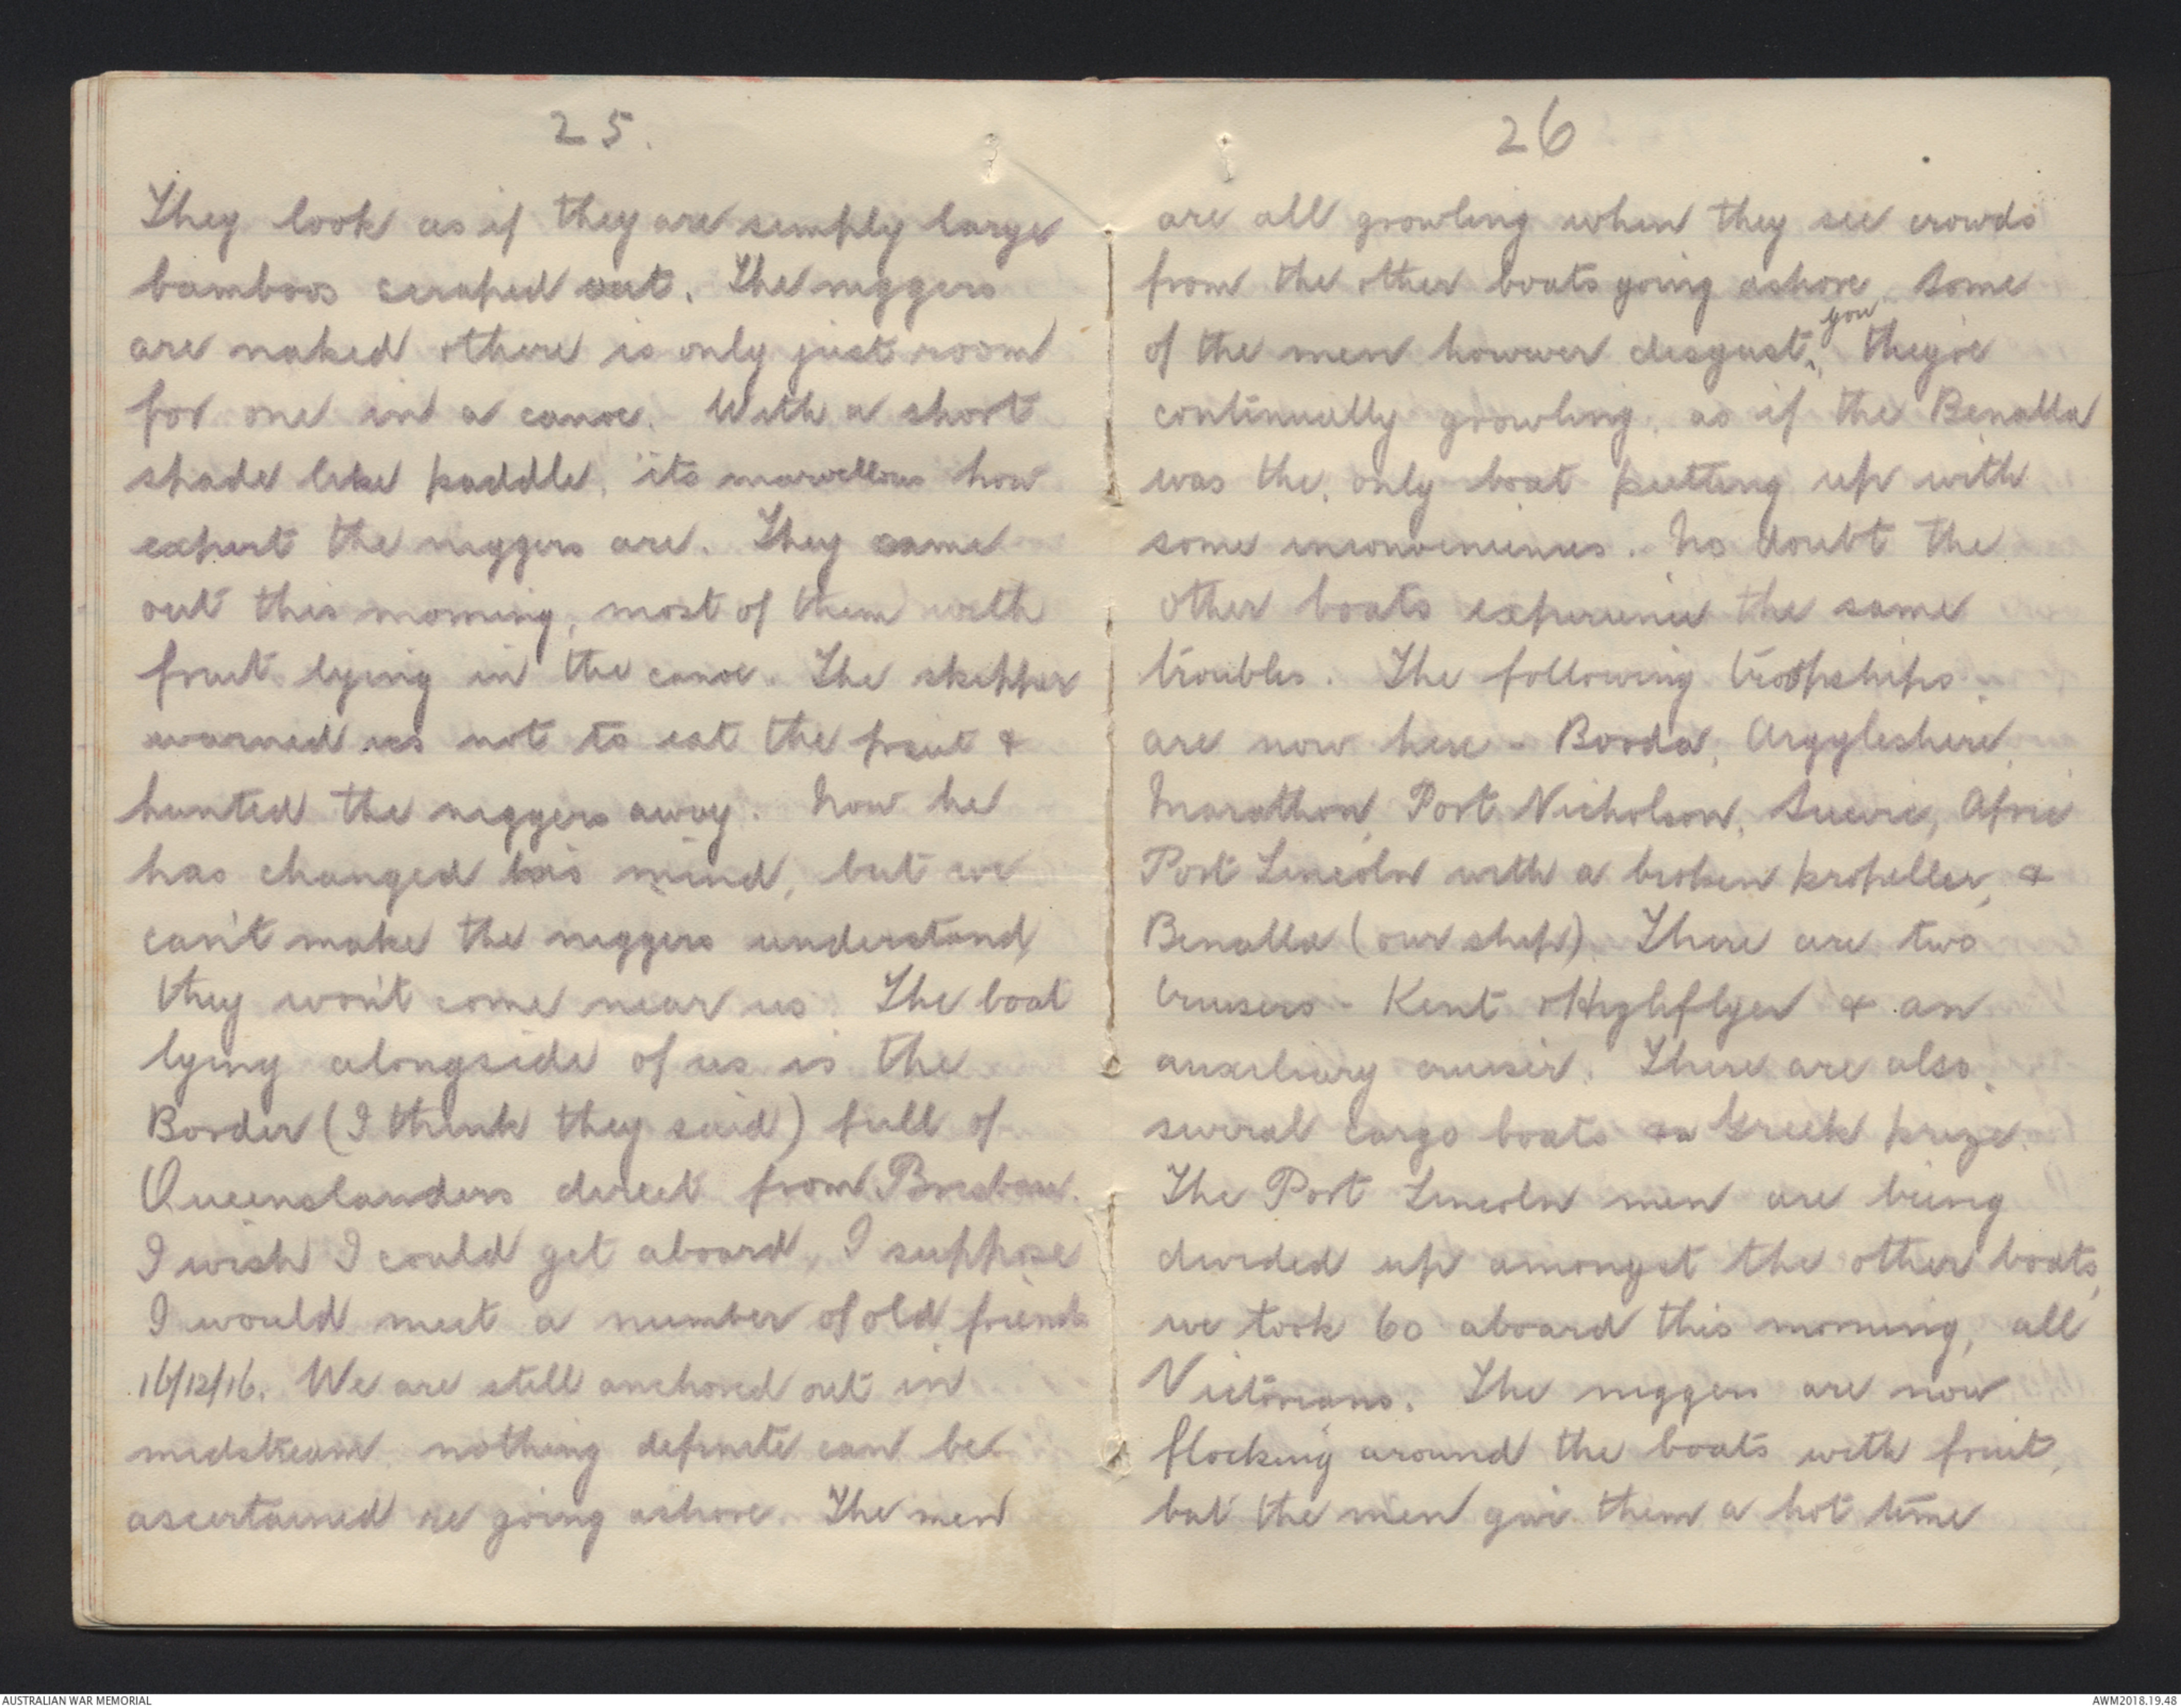 25.
They look as if they are simply large
bamboos scraped out. The niggers
are naked & there is only just room
for one in a canoe. With a short
spade like paddle, its marvellous how
expert the niggers are. They came
out this morning, most of them with
fruit lying in the canoe. The skipper
warned us not to eat the fruit &
hunted the niggers away. Now he
has changed his mind, but we
can't make the niggers understand
they won't come near us. The boat
lying alongside of us is the
Border (I think they said) full of
Queenslanders direct from Brisbane.
I wish I could get aboard, I suppose
I would meet a number of old friends
16/12/16. We are still anchored out in
midstream nothing definite can be
ascertained re going ashore. The men
26
are all growling when they see crowds
from the other boats going ashore. Some
of the men however disgust you, they're
continually growling, as if the Benalla
was the only boat putting up with
some inconveniences. No doubt the
other boats experience the same
troubles. The following troopships
are now here - Booda, Argyleshire,
Marathon, Port Nicholson, Suevic, Afric
Port Lincoln with a broken propeller, &
Benalla (our ship). There are two
cruisers - Kent & Highflyer & an
auxiliary cruiser. There are also
several cargo boats & a Greek prize.
The Port Lincoln men are being
divided up amongst the other boats,
we took 60 aboard this morning, all
Victorians. The niggers are now
flocking around the boats with fruit,
but the men give them a hot time
AUSTRALIAN WAR MEMORIAL
AWM2018.19.48